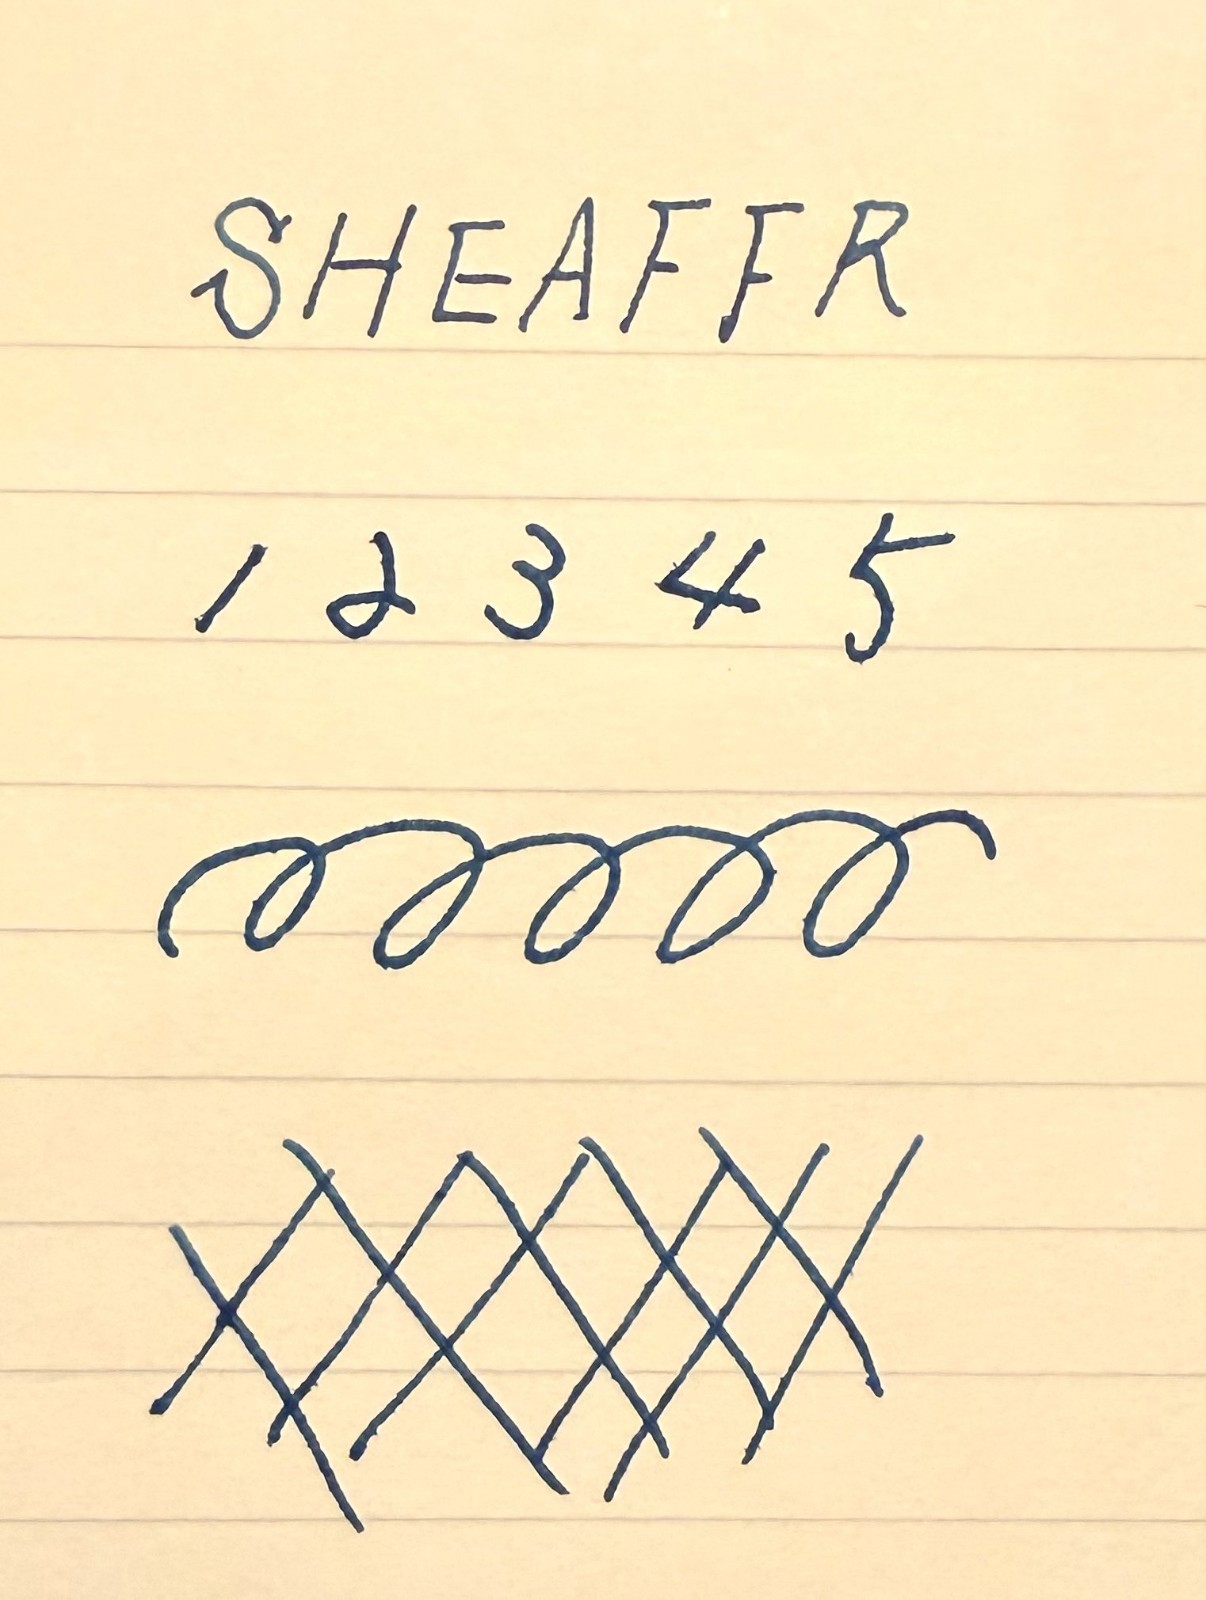 SHEAFFR
1 2 3 4 5